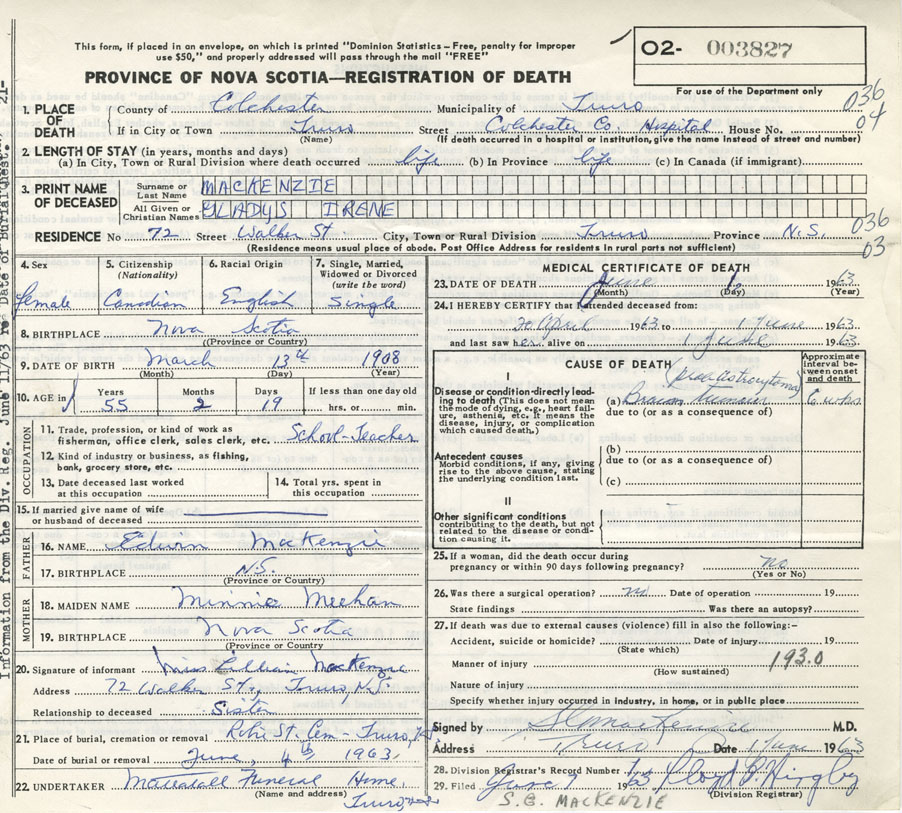 This form, if placed in an envelope, on which is printed "Dominion Statistics – Free, penalty for improper
use $50," and properly addressed will pass through the mail "FREE"
O2- 003827
PROVINCE OF NOVA SCOTIA—REGISTRATION OF DEATH
For use of the Department only
036
04
1. PLACE OF DEATH
County of Colchester Municipality of Truro
If in City or Town Truro Street Colchester Co. Hospital House No.
(Name) (If death occurred in a hospital or institution, give the name instead of street and number)
2. LENGTH OF STAY (in years, months and days)
(a) In City, Town or Rural Division where death occurred life (b) In Province life (c) In Canada (if immigrant)
3. PRINT NAME OF DECEASED
Surname or Last Name MACKENZIE
All Given or Christian Names GLADYS IRENE
RESIDENCE No 72 Street Walker St. City, Town or Rural Division Truro Province N.S.
(Residence means usual place of abode. Post Office Address for residents in rural parts not sufficient)
036
03
4. Sex female
5. Citizenship (Nationality) Canadian
6. Racial Origin English
7. Single, Married, Widowed or Divorced (write the word) Single
8. BIRTHPLACE Nova Scotia
(Province or Country)
9. DATE OF BIRTH March 13th 1908
(Month) (Day) (Year)
10. AGE in Years 55 Months 2 Days 19 If less than one day old hrs. or min.
OCCUPATION
11. Trade, profession, or kind of work as
fisherman, office clerk, sales clerk, etc. School-Teacher
12. Kind of industry or business, as fishing,
bank, grocery store, etc.
13. Date deceased last worked at this occupation
14. Total yrs. spent in this occupation
15. If married give name of wife
or husband of deceased
FATHER
16. NAME Edwin MacKenzie
17. BIRTHPLACE N.S.
(Province or Country)
MOTHER
18. MAIDEN NAME Minnie Meehan
19. BIRTHPLACE Nova Scotia
(Province or Country)
20. Signature of informant Miss Lillian MacKenzie
Address 72 Walker St., Truro, N.S.
Relationship to deceased Sister
21. Place of burial, cremation or removal Robie St. Cem - Truro, N.S.
Date of burial or removal June, 4th 1963,
22. UNDERTAKER Mattatall Funeral Home,
(Name and address) Truro, N.S.
MEDICAL CERTIFICATE OF DEATH
23. DATE OF DEATH June 1, 1963
(Month) (Day) (Year)
24. I HEREBY CERTIFY that I attended deceased from:
20 April 1963 to 1 June 1963
and last saw her alive on 1 June 1963
CAUSE OF DEATH
Approximate interval between onset and death
I
Disease or condition directly leading to death (This does not mean
the mode of dying, e.g., heart failure, asthenia, etc. It means the
disease, injury, or complication which caused death.)
(a) 6 wks
due to (or as a consequence of)
Antecedent causes
Morbid conditions, if any, giving rise to the above cause, stating
the underlying condition last.
(b)
due to (or as a consequence of)
(c)
II
Other significant conditions
contributing to the death, but not related to the disease or condition causing it.
25. If a woman, did the death occur during
pregnancy or within 90 days following pregnancy? No
(Yes or No)
26. Was there a surgical operation? no Date of operation 19
State findings Was there an autopsy?
27. If death was due to external causes (violence) fill in also the following:–
Accident, suicide or homicide? Date of injury 19
(State which)
Manner of injury 193.0
(How sustained)
Nature of injury
Specify whether injury occurred in industry, in home, or in public place
Signed by S B MacKenzie M.D.
Address Truro Date 1 June 1963
28. Division Registrar's Record Number
29. Filed June 1 1963
(Division Registrar)
S.B. MACKENZIE
Information from the Div. Reg. June 11/63 re Date of Burial